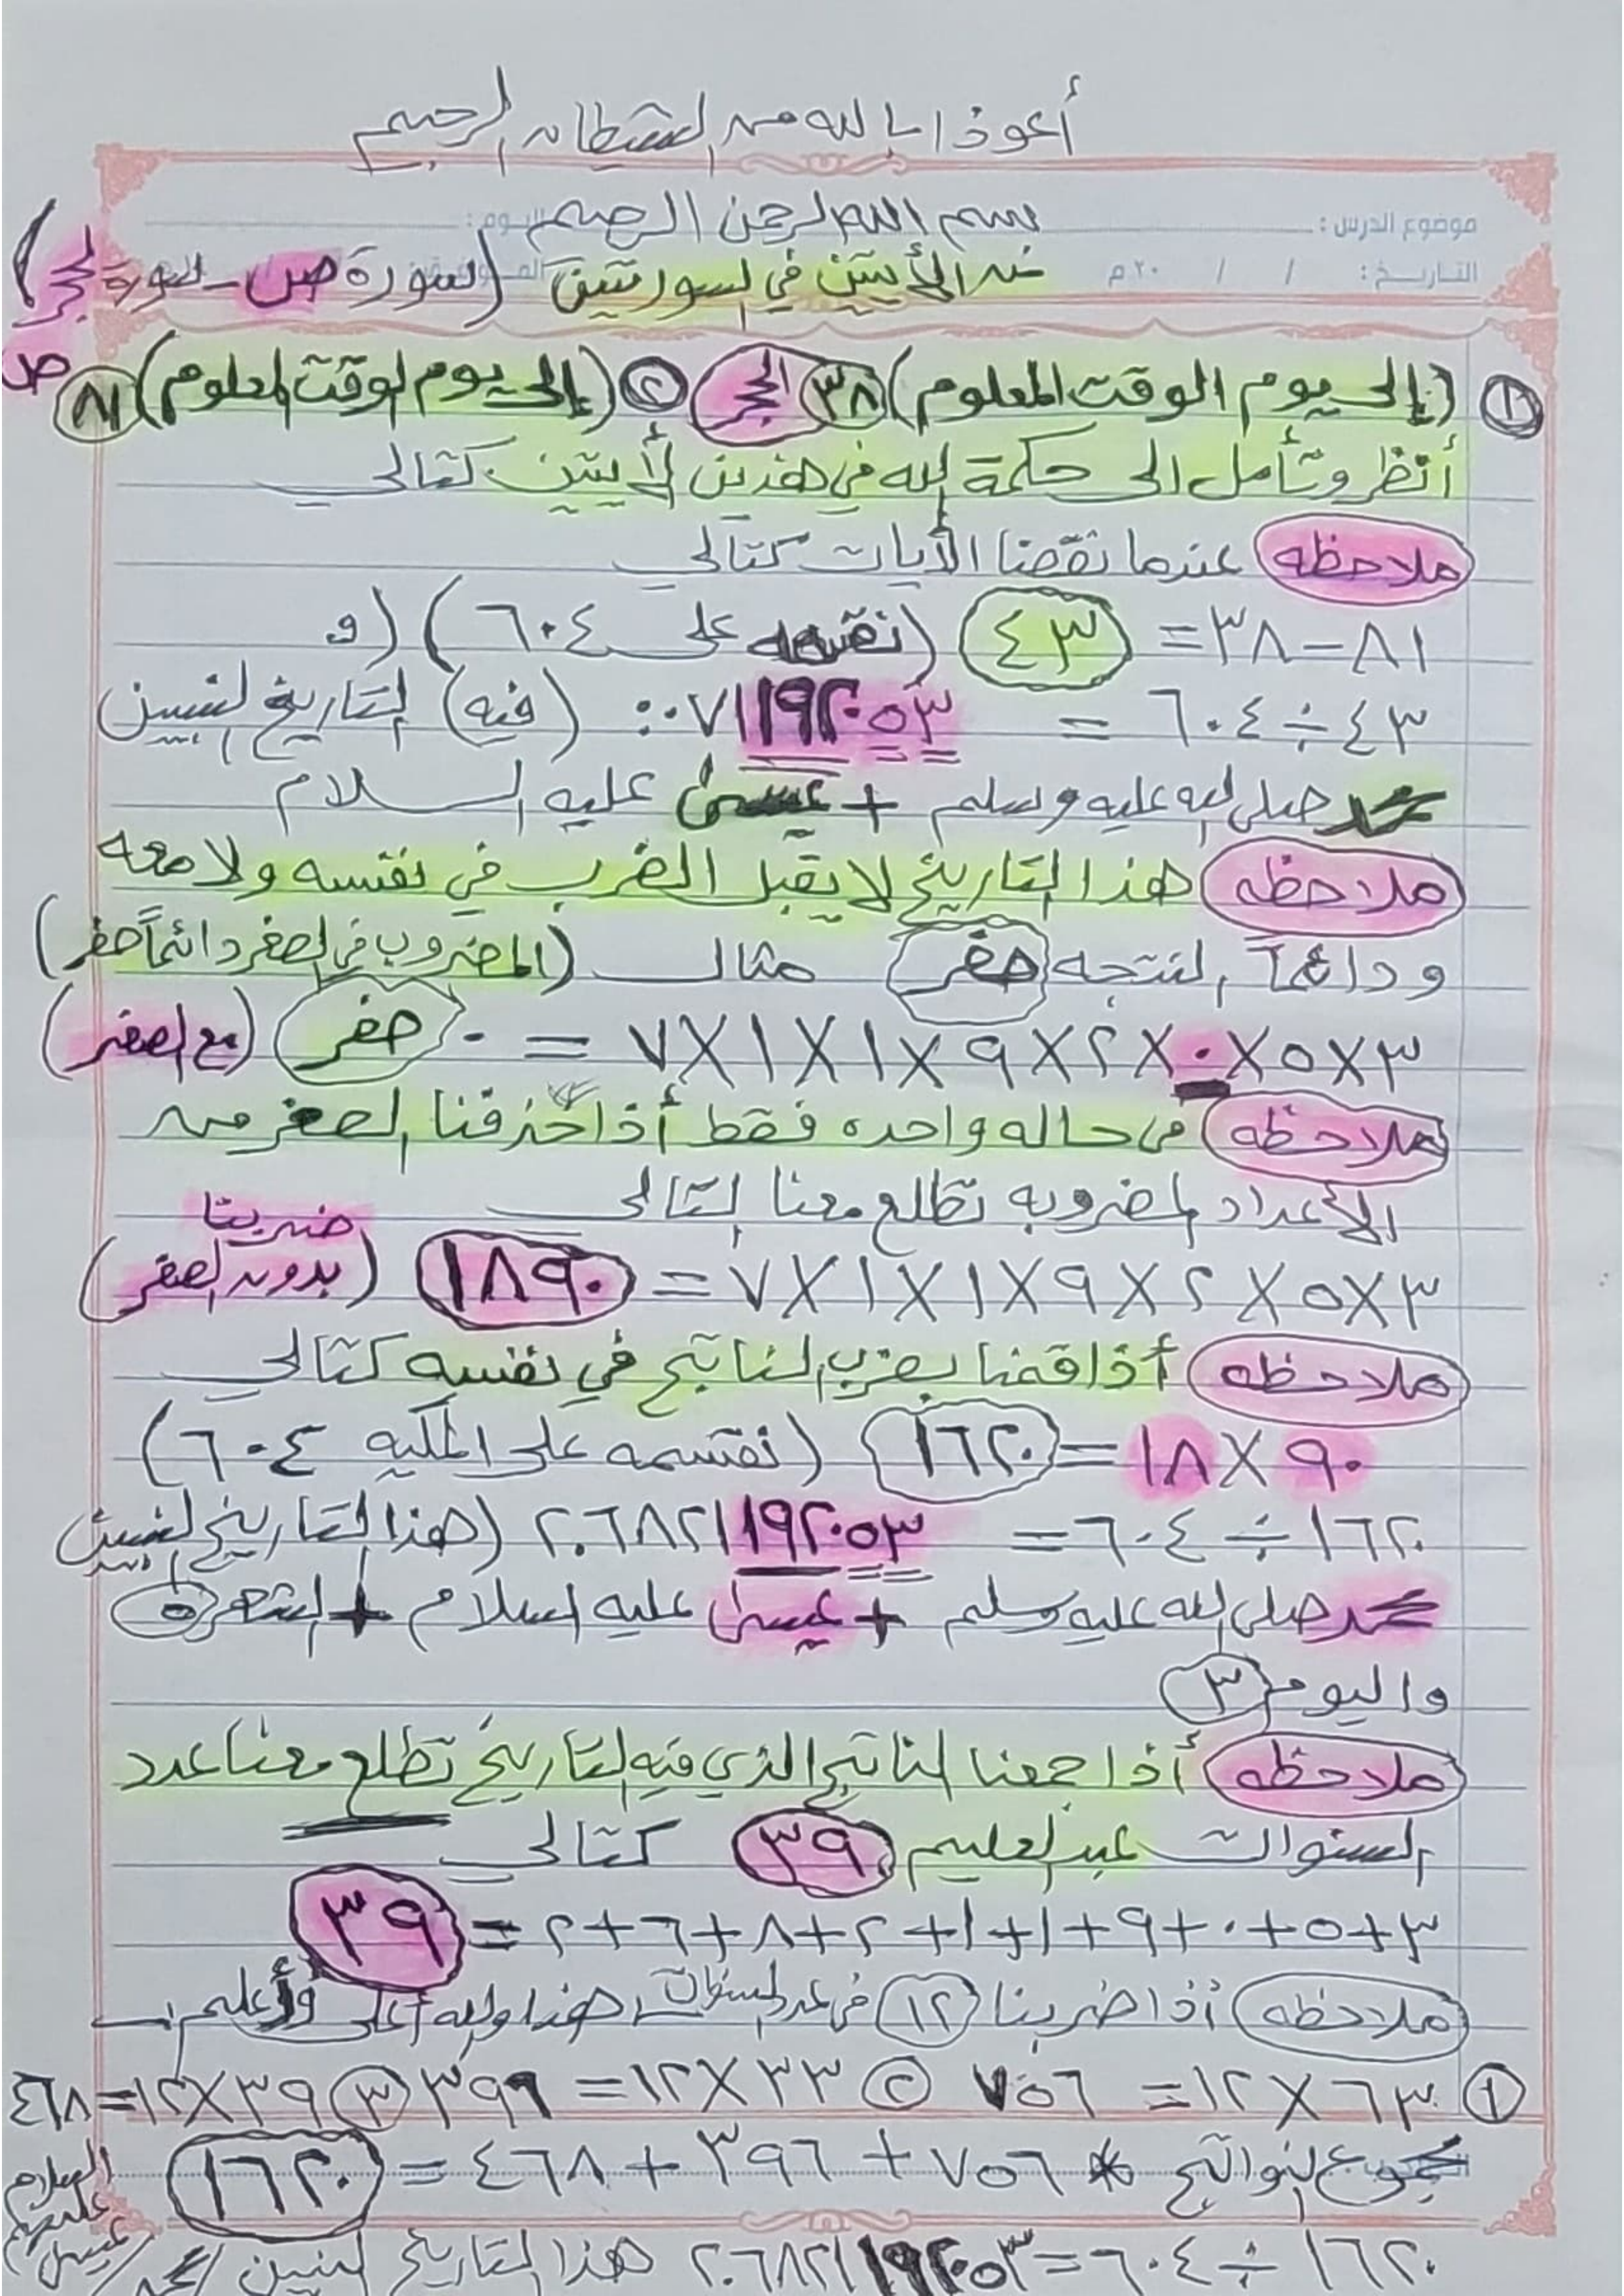 أعوذ بالله من الشيطان الرجيم
بسم الله الرحمن الرحيم
موضوع الدرس : اليوم :
التاريخ : / / ٢٠ م
من الأيتين في السورتين (سورة ص - سورة الحجر)
① (إلى يوم الوقت المعلوم) ٣٨ الحجر ② (إلى يوم الوقت المعلوم) ٨١ ص
أنظر وتأمل الى حكمة الله في هذين الأيتين كتالي
ملاحظه عندما نقصنا الأيات كتالي
٨١ - ٣٨ = ٤٣ (نقسمه على ٦٠٤) (و
٤٣ ÷ ٦٠٤ = ٠٧١١٩٢٠٥٣: (فيه) التاريخ لنبيين
محمد صلى الله عليه وسلم + عيسى عليه السلام
ملاحظه هذا التاريخ لا يقبل الضرب في نفسه ولا معه
ودائماً النتجه صفر مثال (المضروب في الصفر دائماً صفر)
٣×٥×٠×٢×٩×١×١×٧ = ٠ صفر (مع الصفر)
ملاحظه في حاله واحده فقط أذا حذفنا الصفر من
الأعداد المضروبه تطلع معنا التالي
٣×٥×٢×٩×١×١×٧ = ١٨٩٠ (ضربنا بدون الصفر)
ملاحظه أذا قمنا بضرب الناتج في نفسه كتالي
٩٠ × ١٨ = ١٦٢٠ (نقسمه على المكيه ٦٠٤)
١٦٢٠ ÷ ٦٠٤ = ٢.٦٨٢١١٩٢٠٥٣ (هذا التاريخ لنبيين
محمد صلى الله عليه وسلم + عيسى عليه السلام + الشهر ٥
واليوم ٣
ملاحظه أذا جمعنا الناتج الذي فيه التاريخ تطلع معنا عدد
السنوات عبد العليم ٣٩ كتالي
٣+٥+٠+٩+١+١+٢+٨+٦+٢ = ٣٩
ملاحظه أذا ضربنا ١٢ في عدد السنوات هذا والله أعلى وأعلم
① ٦٣ × ١٢ = ٧٥٦ ② ٣٣ × ١٢ = ٣٩٦ ③ ٣٩ × ١٢ = ٤٦٨
مجموع النواتج * ٧٥٦ + ٣٩٦ + ٤٦٨ = ١٦٢٠
١٦٢٠ ÷ ٦٠٤ = ٢.٦٨٢١١٩٢٠٥٣ هذا التاريخ لنبين محمد / عيسى عليهم السلام